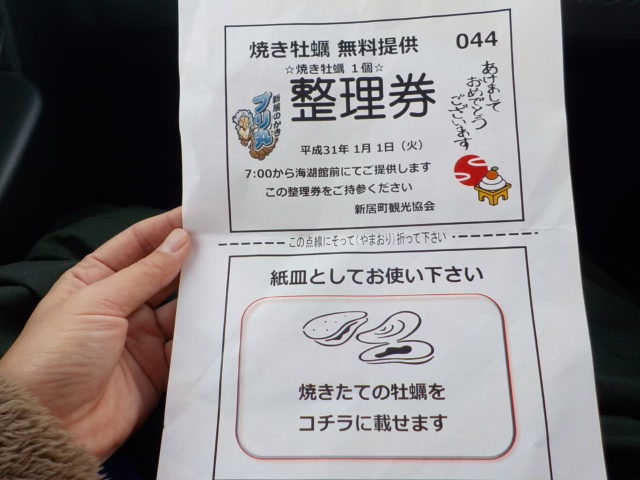 焼き牡蠣 無料提供 044
☆焼き牡蠣 1個☆
整理券
あけまして
おめでとう
ございます
新居のかき
プリ丸
平成31年 1月 1日（火）
7:00から海湖館前にてご提供します
この整理券をご持参ください
新居町観光協会
この点線にそって(やまおり)折って下さい
紙皿としてお使い下さい
焼きたての牡蠣を
コチラに載せます